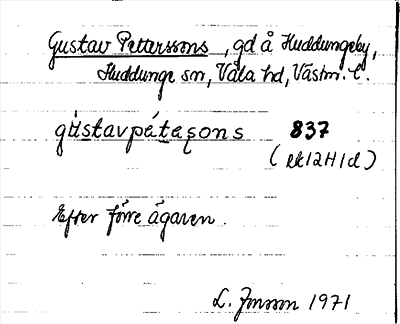 Gustav Petterssons, gd å Huddungeby,
Huddunge sn, Våla hd, Västm. l.
gùstavpétesons 837
(ek12H1d)
Efter förre ägaren.
L. Jonsson 1971